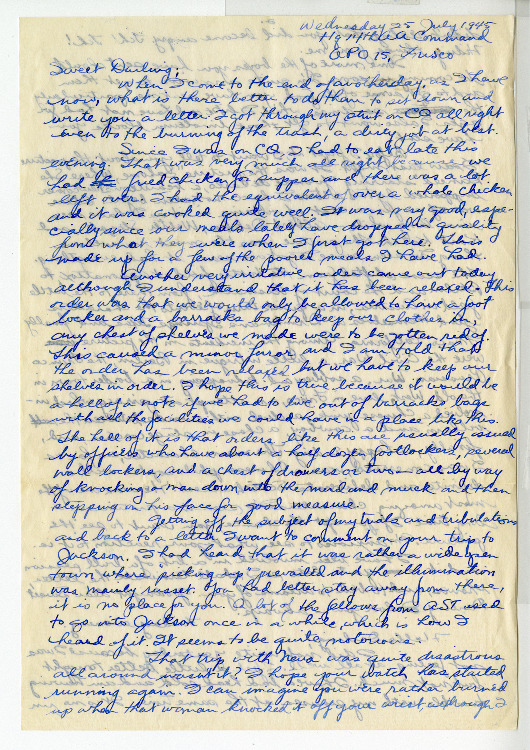 Wednesday 25 July 1945
Hq. Command
APO 75, Frisco
Sweet Darling:
When I come to the end of another day, as I have
now, what is there better to do than to sit down and
write you a letter. I got through my stint on CQ all right
even to the burning of the trash, a dirty job at best.
Since I was on CQ I had to eat late this
evening. That was very much all right because we
had fried chicken for supper and there was a lot
left over. I had the equivalent of over a whole chicken
and it was cooked quite well. It was very good, espe-
cially since our meals lately have dropped in quality
from what they were when I first got here. This
made up for a few of the poorer meals I have had.
Another very irritative order came out today
although I understand that it has been relaxed. This
order was that we would only be allowed to have a foot
locker and a barracks bag to keep our clothes in;
any chest of shelves we made were to be gotten rid of.
This caused a minor furor and I am told that
the order has been relaxed but we have to keep our
shelves in order. I hope this is true because it would be
a hell of a note if we had to live out of barracks bags
with all the facilities we could have in a place like this.
The hell of it is that orders like this are usually issued
by officers who have about a half dozen footlockers, several
wall lockers, and a chest of drawers or two - all by way
of knocking a man down into the mud and muck and then
stepping in his face for good measure.
Getting off the subject of my trials and tribulations
and back to a letter I want to comment on your trip to
Jackson. I had heard that it was rather a wide open
town where "picking up" prevailed and the illumination
was mainly russet. You had better stay away from there,
it is no place for you. A lot of the fellows from AST used
to go into Jackson once in a while, which is how I
heard of it. It seems to be quite notorious.
That trip with was quite disastrous
all around wasn't it? I hope your watch has started
running again. I can imagine you were rather burned
up when that woman knocked it off your wrist although I